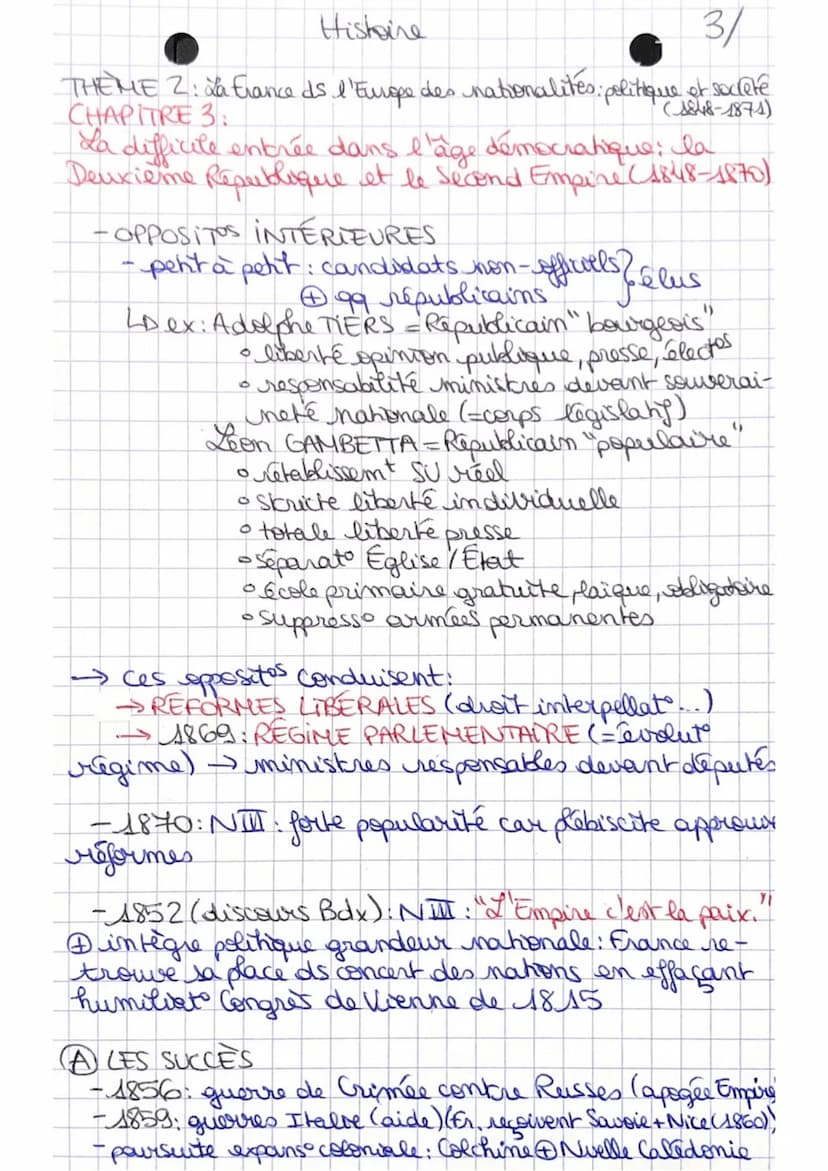 Histoire
3/
THÈME 2 : La France ds l'Europe des nationalités : politique et société
(1848-1871)
CHAPITRE 3 :
La difficile entrée dans l'âge démocratique : la
Deuxième République et le Second Empire (1848-1870)
- OPPOSIT°s INTÉRIEURES
- petit à petit : candidats non-officiels } élus
⊕ qq républicains
↳ ex : Adolphe TIERS = Républicain "bourgeois"
∘ liberté opinion publique, presse, élect°s
∘ responsabilité ministres devant souverai-
neté nationale (= corps législatif)
Léon GAMBETTA = Républicain "populaire"
∘ rétablissemt SU réel
∘ stricte liberté individuelle
∘ totale liberté presse
∘ séparat° Église / État
∘ école primaire gratuite, laïque, obligatoire
∘ suppress° armées permanentes
→ ces opposit°s conduisent :
→ RÉFORMES LIBÉRALES (droit interpellat°...)
→ 1869 : RÉGIME PARLEMENTAIRE (= évolut°
régime) → ministres responsables devant députés
- 1870 : NIII : forte popularité car plébiscite approuv
réformes
- 1852 (discours Bdx) : NIII : "L'Empire c'est la paix."
⊕ intègre politique grandeur nationale : France re-
trouve sa place ds concert des nations en effaçant
humiliat° Congrès de Vienne de 1815
Ⓐ LES SUCCÈS
- 1856 : guerre de Crimée contre Russes (apogée Empire
- 1859 : guerres Italie (aide) (Fr. reçoivent Savoie + Nice (1860))
- poursuite expans° coloniale : Cochine ⊕ Nvelle Calédonie